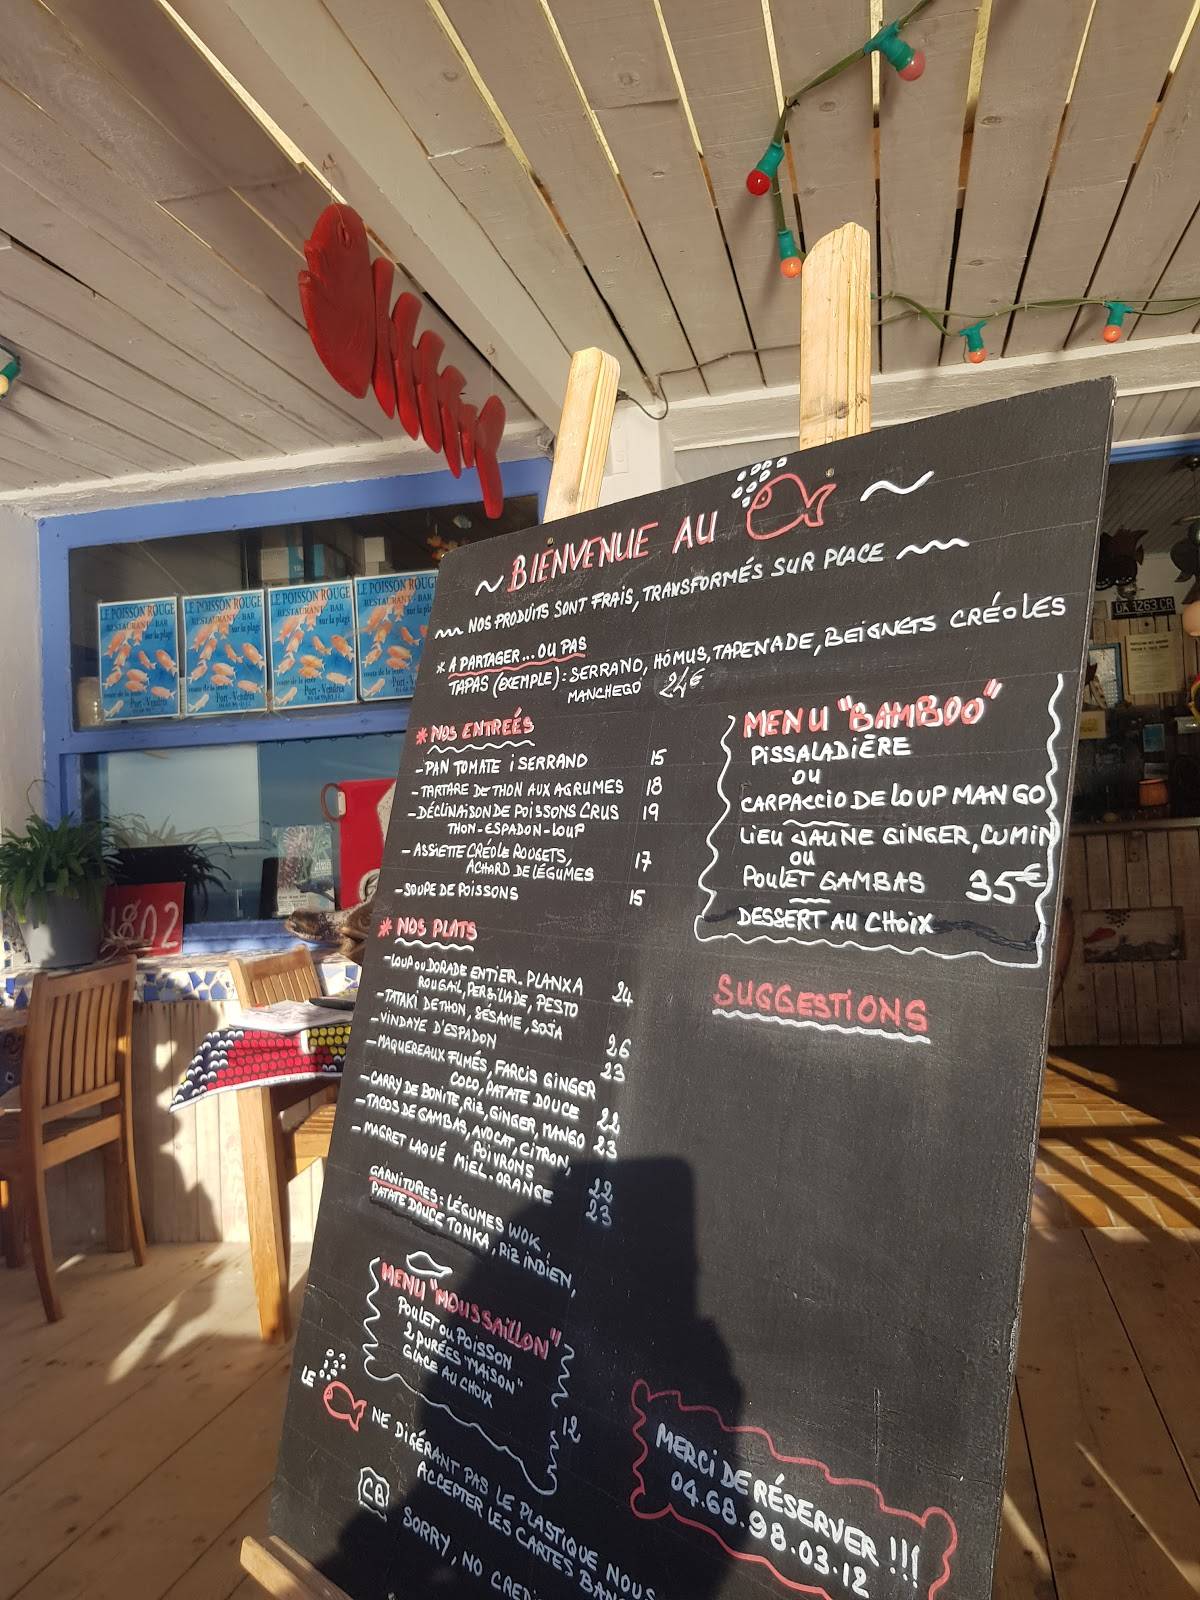 ~ BIENVENUE AU ~
NOS PRODUITS SONT FRAIS, TRANSFORMÉS SUR PLACE
* A PARTAGER... OU PAS
TAPAS (EXEMPLE) : SERRANO, HÓMUS, TAPENADE, BEIGNETS CRÉOLES
MANCHEGO 24€
* NOS ENTREÉS
- PAN TOMATE i SERRANO 15
- TARTARE DE THON AUX AGRUMES 18
- DÉCLINAISON DE POISSONS CRUS 19
THON - ESPADON - LOUP
- ASSIETTE CRÉOLE ROUGETS, 17
ACHARD DE LÉGUMES
- SOUPE DE POISSONS 15
* NOS PLATS
- LOUP OU DORADE ENTIER. PLANXA 24
ROUGAIL, PERSILLADE, PESTO
- TATAKI DE THON, SÉSAME, SOJA 26
- VINDAYE D'ESPADON 23
- MAQUEREAUX FUMÉS, FARCIS GINGER
COCO, PATATE DOUCE 22
- CARRY DE BONITE, RIZ, GINGER, MANGO 23
- TACOS DE GAMBAS, AVOCAT, CITRON,
POIVRONS 22
- MAGRET LAQUÉ MIEL-ORANGE 23
GARNITURES : LÉGUMES WOK,
PATATE DOUCE TONKA, RIZ INDIEN,
MENU "MOUSSAILLON"
POULET OU POISSON
2 PURÉES "MAISON"
GLACE AU CHOIX
12
LE
NE DIGÉRANT PAS LE PLASTIQUE NOUS
ACCEPTER LES CARTES BAN
CB
SORRY, NO CREDI
MENU "BAMBOO"
PISSALADIÈRE
OU
CARPACCIO DE LOUP MANGO
LIEU JAUNE GINGER, CUMIN
OU
POULET GAMBAS 35€
DESSERT AU CHOIX
SUGGESTIONS
MERCI DE RÉSERVER !!!
04.68.98.03.12
LE POISSON ROUGE
RESTAURANT - BAR
sur la plage
route de la jetée
Port - Vendres
LE POISSON ROUGE
RESTAURANT - BAR
sur la plage
route de la jetée
Port - Vendres
LE POISSON ROUGE
RESTAURANT - BAR
sur la plage
route de la jetée
Port - Vendres
LE POISSON ROUGE
RESTAURANT - BAR
sur la plage
route de la jetée
Port - Vendres
1802